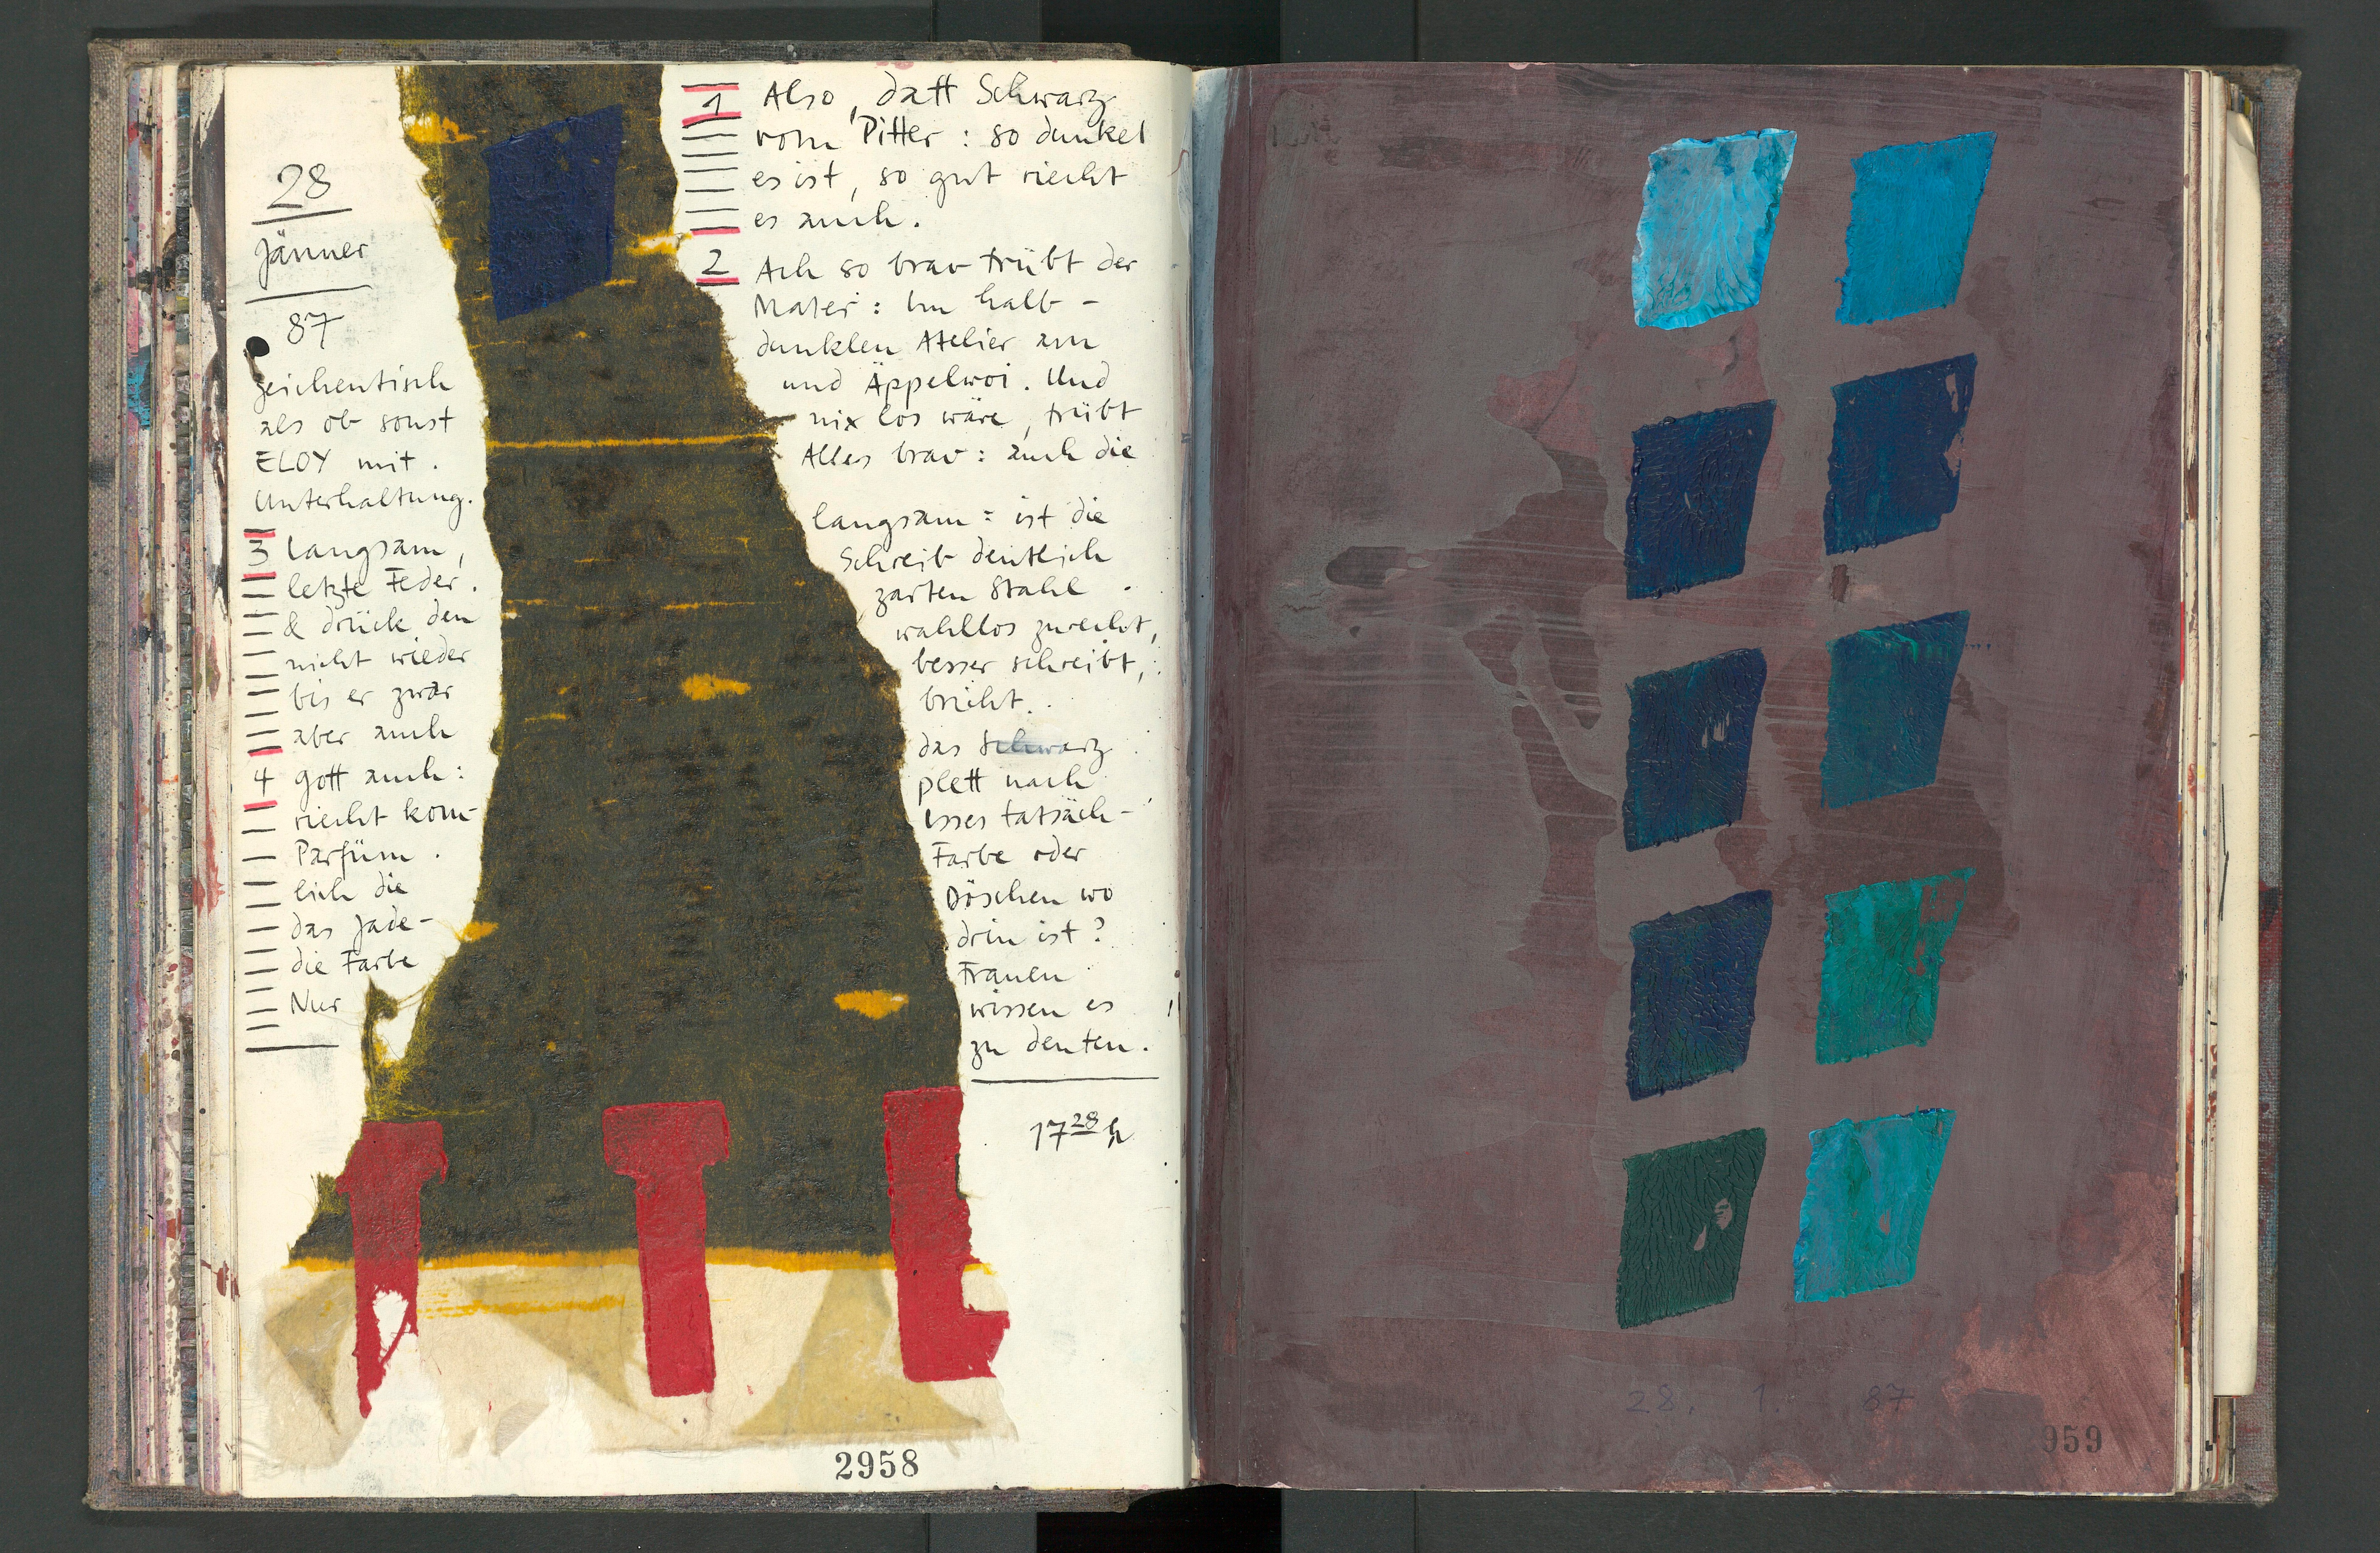 28
Jänner
87
1 Also, datt Schwarz
vom Pitter : so dunkel
es ist, so gut riecht
es auch.
2 Ach so brav trübt der
Maler : Im halb-
dunklen Atelier am
Zeichentisch und Äppelwoi. Und
als ob sonst nix los wäre, trübt
ELOY mit. Alles brav : auch die
Unterhaltung.
3 langsam, langsam : ist die
letzte Feder. Schreib deutlich
& drück den zarten Stahl
nicht wieder wahllos zurecht,
bis er zwar besser schreibt,
aber auch bricht.
4 Gott auch : das Schwarz
riecht kom- plett nach
Parfüm. Isses tatsäch-
lich die Farbe oder
das Jade- Döschen wo
die Farbe drin ist?
Nur Frauen
wissen es
zu deuten.
17 28 h
2958
28. 1. 87
959